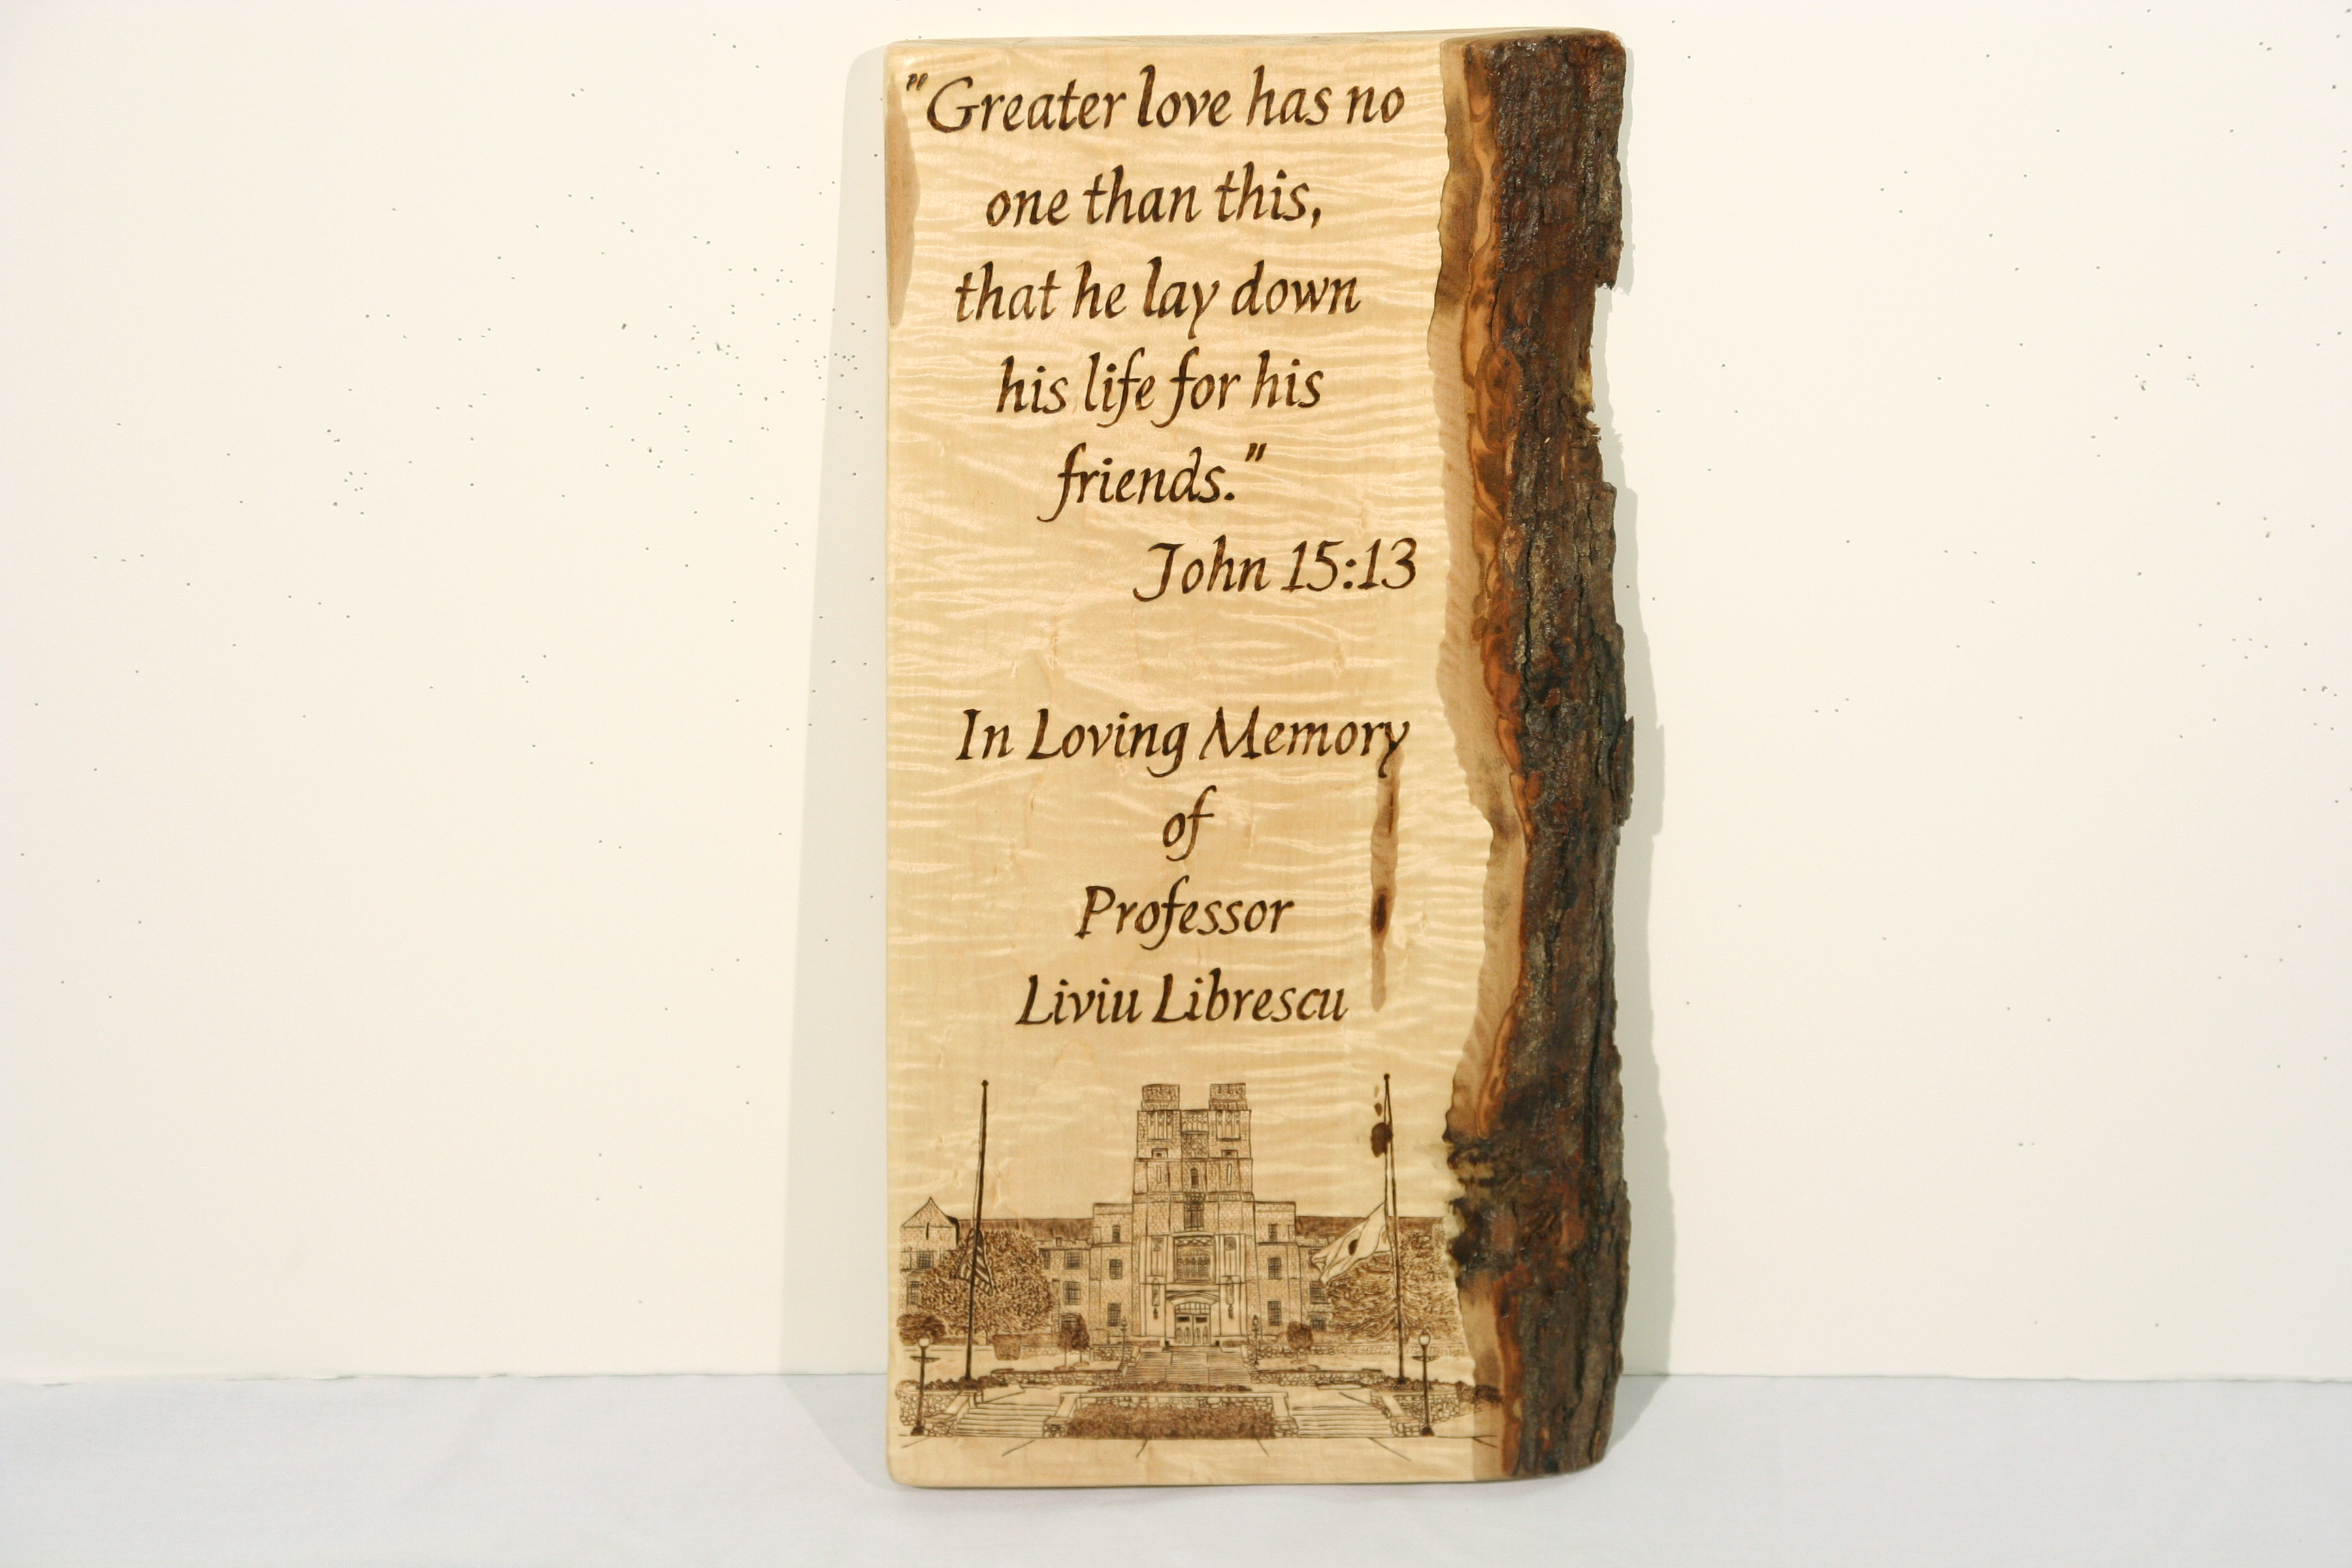 "Greater love has no
one than this,
that he lay down
his life for his
friends."
John 15:13
In Loving Memory
of
Professor
Liviu Librescu